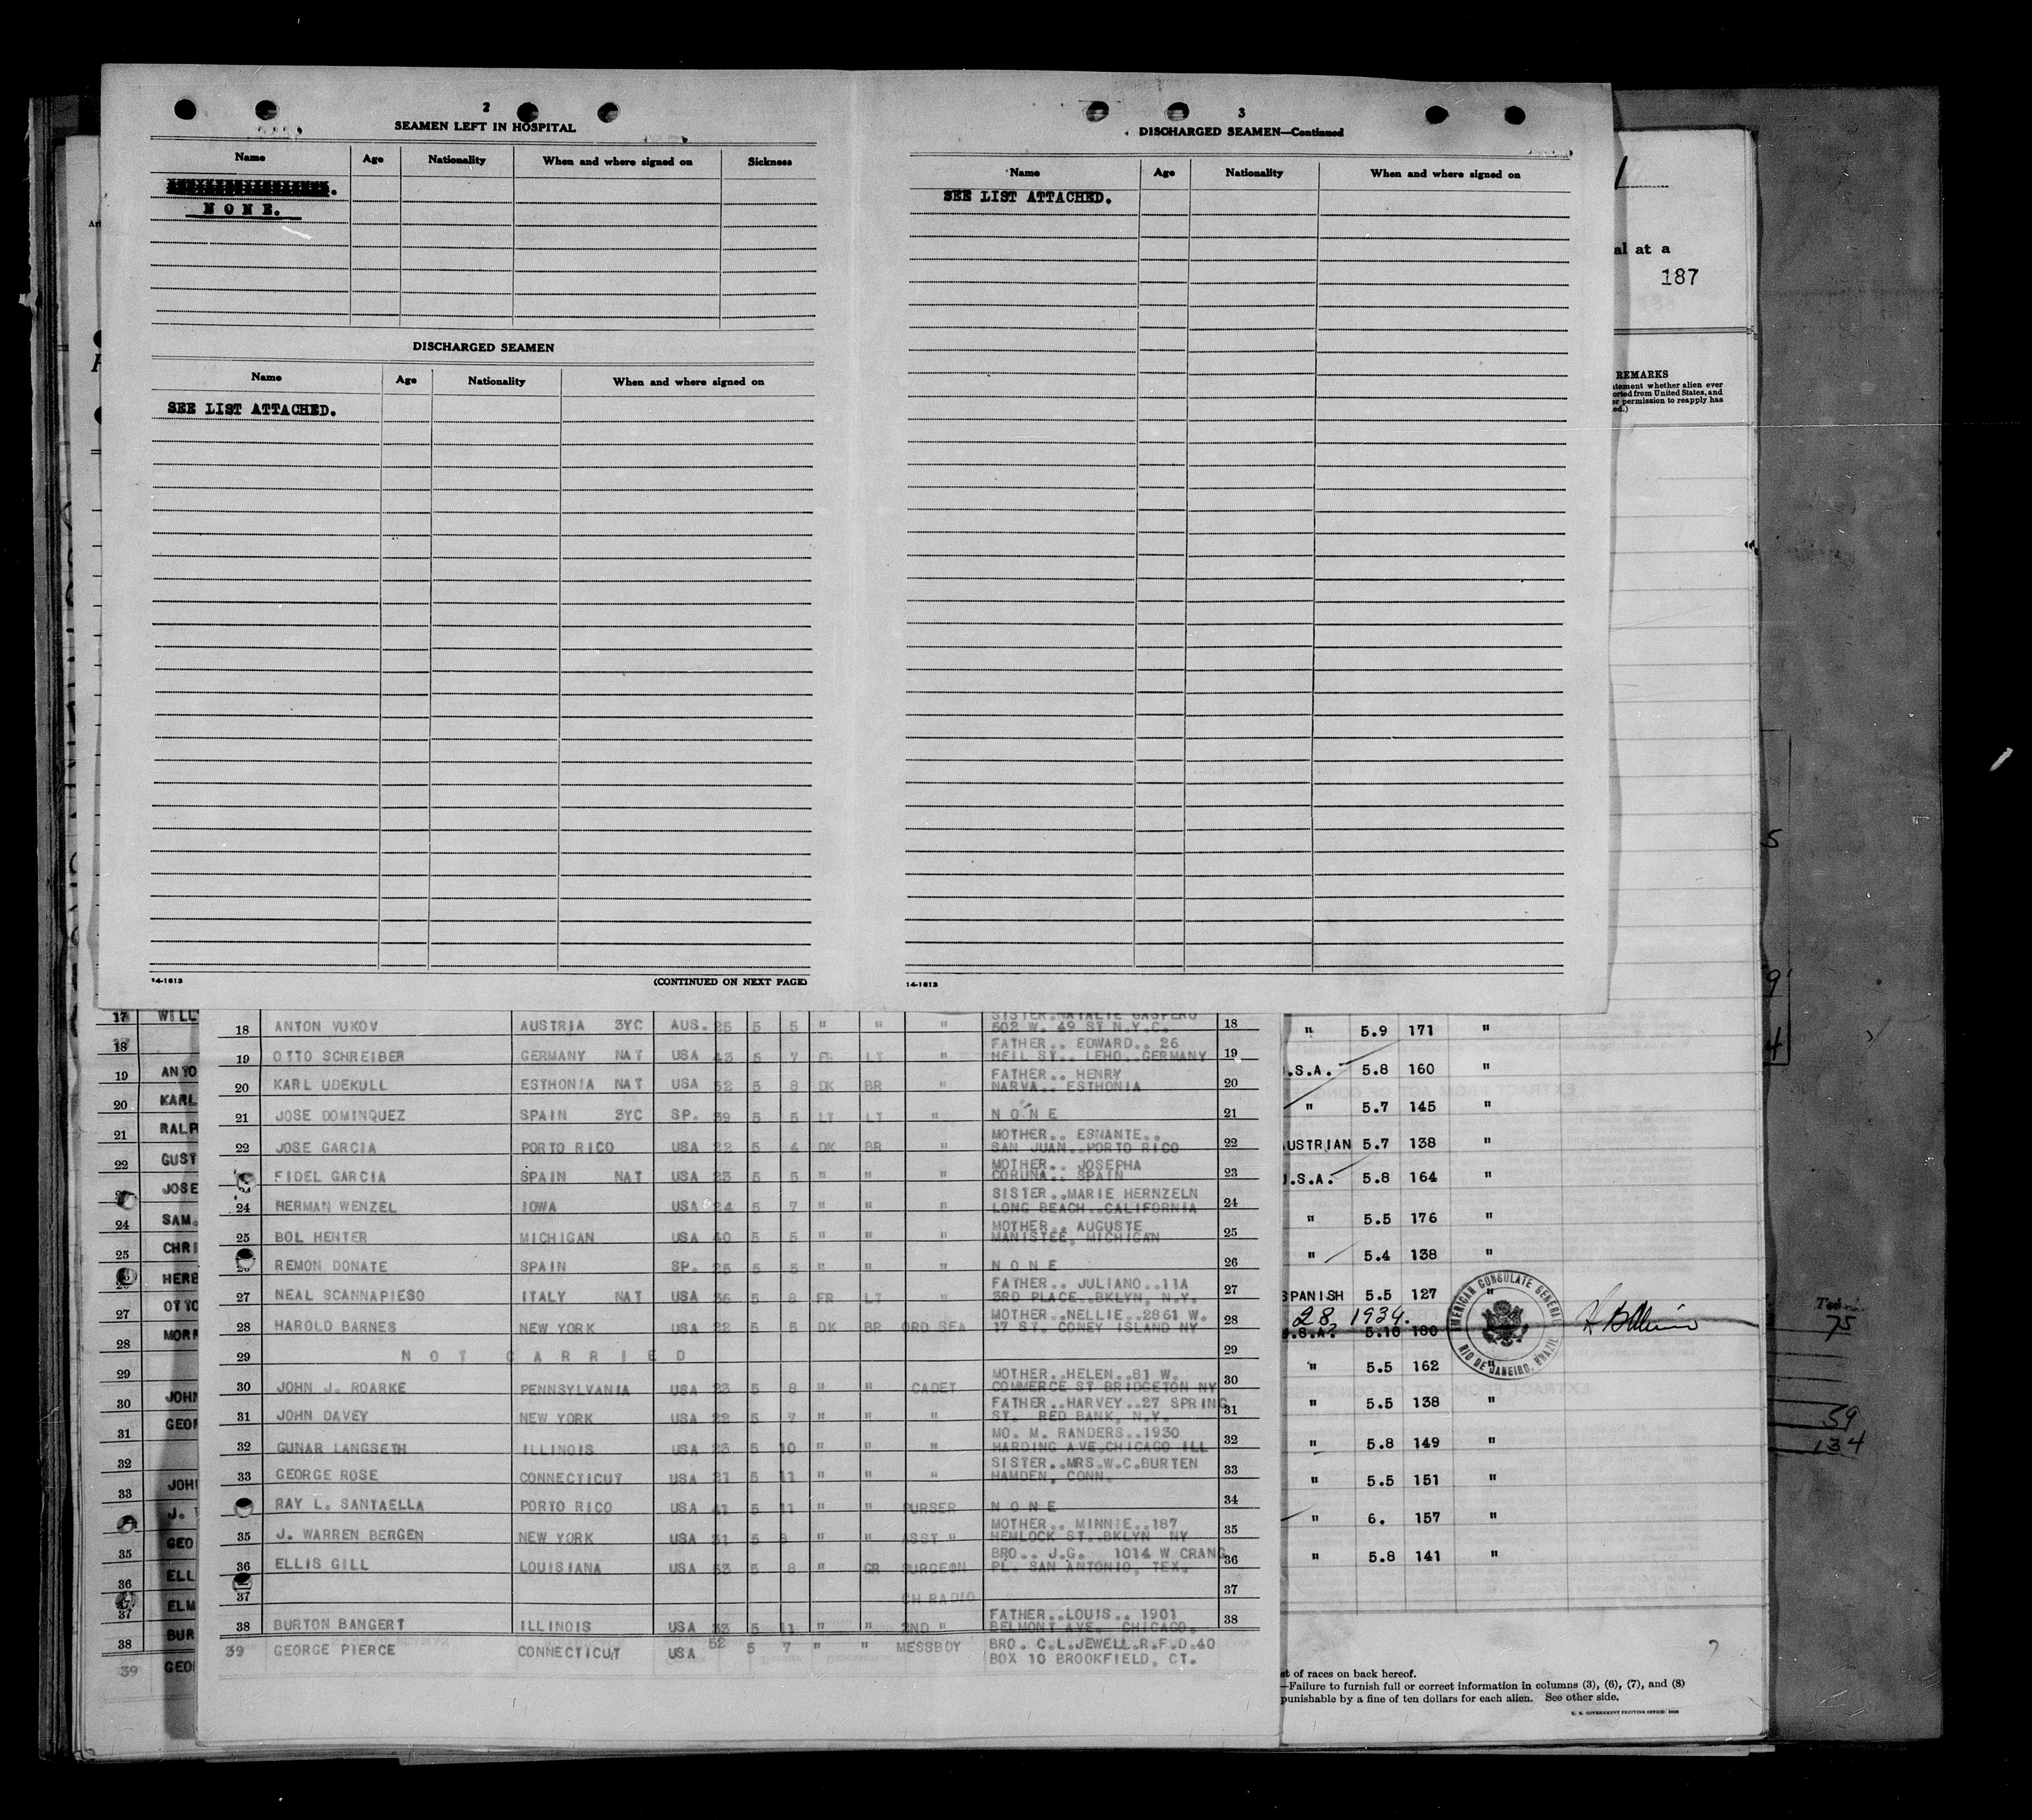 2
SEAMEN LEFT IN HOSPITAL
Name Age Nationality When and where signed on Sickness
NONE.
DISCHARGED SEAMEN
Name Age Nationality When and where signed on
SEE LIST ATTACHED.
14-1613 (CONTINUED ON NEXT PAGE)
3
DISCHARGED SEAMEN—Continued
Name Age Nationality When and where signed on
SEE LIST ATTACHED.
14-1613
al at a
187
REMARKS
atement whether alien ever
orted from United States, and
er permission to reapply has
ed.)
17 WILL
18
19 ANTO
20 KARL
21 RALP
22 GUST
JOSE
24 SAM.
25 CHRI
HERB
27 OTTO
28 MORR
29
30 JOHN
31 GEOR
32
33 JOHN
J.
35 GEO
36 ELL
37 ELM
38 BUR
39 GEO
SISTER.NATALIE GASPERO
18 ANTON VUKOV AUSTRIA 3YC AUS. 25 5 5 " " " 502 W. 49 ST N.Y.C. 18
FATHER.. EDWARD.. 26
19 OTTO SCHREIBER GERMANY NAT USA 43 5 7 FR LT " HEIL ST.. LEHO..GERMANY 19
FATHER.. HENRY
20 KARL UDEKULL ESTHONIA NAT USA 52 5 8 DK BR " NARVA.. ESTHONIA 20
21 JOSE DOMINQUEZ SPAIN 3YC SP. 39 5 5 LT LT " NONE 21
MOTHER.. ESNANTE..
22 JOSE GARCIA PORTO RICO USA 22 5 4 DK BR " SAN JUAN..PORTO RICO 22
MOTHER.. JOSEPHA
FIDEL GARCIA SPAIN NAT USA 23 5 5 " " " CORUNA.. SPAIN 23
SISTER..MARIE HERNZELN
24 HERMAN WENZEL IOWA USA 24 5 7 " " " LONG BEACH..CALIFORNIA 24
MOTHER.. AUGUSTE
25 BOL HENTER MICHIGAN USA 40 5 5 " " " MANISTEE, MICHIGAN 25
REMON DONATE SPAIN SP. 25 5 5 " " " NONE 26
FATHER.. JULIANO..11A
27 NEAL SCANNAPIESO ITALY NAT USA 36 5 8 FR LT " 3RD PLACE..BKLYN, N.Y. 27
MOTHER..NELLIE..2861 W.
28 HAROLD BARNES NEW YORK USA 22 5 5 DK BR ORD SEA 17 ST. CONEY ISLAND NY 28
29 NOT CARRIED 29
MOTHER..HELEN..81 W.
30 JOHN J. ROARKE PENNSYLVANIA USA 23 5 8 " " CADET COMMERCE ST BRIDGETON NY 30
FATHER..HARVEY..27 SPRING
31 JOHN DAVEY NEW YORK USA 22 5 7 " " " ST. RED BANK, N.Y. 31
MO. M. RANDERS..1930
32 GUNAR LANGSETH ILLINOIS USA 23 5 10 " " " HARDING AVE.CHICAGO ILL 32
SISTER..MRS.W.C.BURTEN
33 GEORGE ROSE CONNECTICUT USA 21 5 11 " " " HAMDEN, CONN. 33
RAY L. SANTAELLA PORTO RICO USA 41 5 11 " " PURSER NONE 34
MOTHER.. MINNIE..187
35 J. WARREN BERGEN NEW YORK USA 31 5 8 " " ASST " HEMLOCK ST..BKLYN NY 35
BRO.. J.G. 1014 W CRANG
36 ELLIS GILL LOUISIANA USA 53 5 8 " GR SURGEON PL. SAN ANTONIO, TEX. 36
37 CH RADIO 37
FATHER..LOUIS.. 1901
38 BURTON BANGERT ILLINOIS USA 33 5 11 " " 2ND " BELMONT AVE. CHICAGO. 38
39 GEORGE PIERCE CONNECTICUT USA 52 5 7 " " MESSBOY BRO. C.L.JEWELL.R.F.D.40
BOX 10 BROOKFIELD, CT.
" 5.9 171 "
.S.A. 5.8 160 "
" 5.7 145 "
USTRIAN 5.7 138 "
.S.A. 5.8 164 "
" 5.5 176 "
" 5.4 138 "
SPANISH 5.5 127 "
28, 1934.
.S.A. 5.10 180
" 5.5 162 "
" 5.5 138 "
" 5.8 149 "
" 5.5 151 "
" 6. 157 "
" 5.8 141 "
AMERICAN CONSULATE GENERAL
RIO DE JANEIRO, BRAZIL
st of races on back hereof.
—Failure to furnish full or correct information in columns (3), (6), (7), and (8)
punishable by a fine of ten dollars for each alien. See other side.
U. S. GOVERNMENT PRINTING OFFICE:
5
9
4
75
59
134